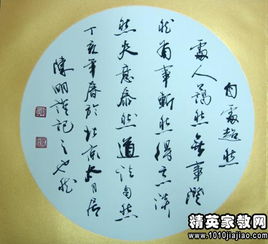 自處超然
處人藹然無事澄
然有事斬然得意淡
然失意泰然道法自然
丁亥年春於北京
陳明
精英家教网
www.1010jiajiao.com